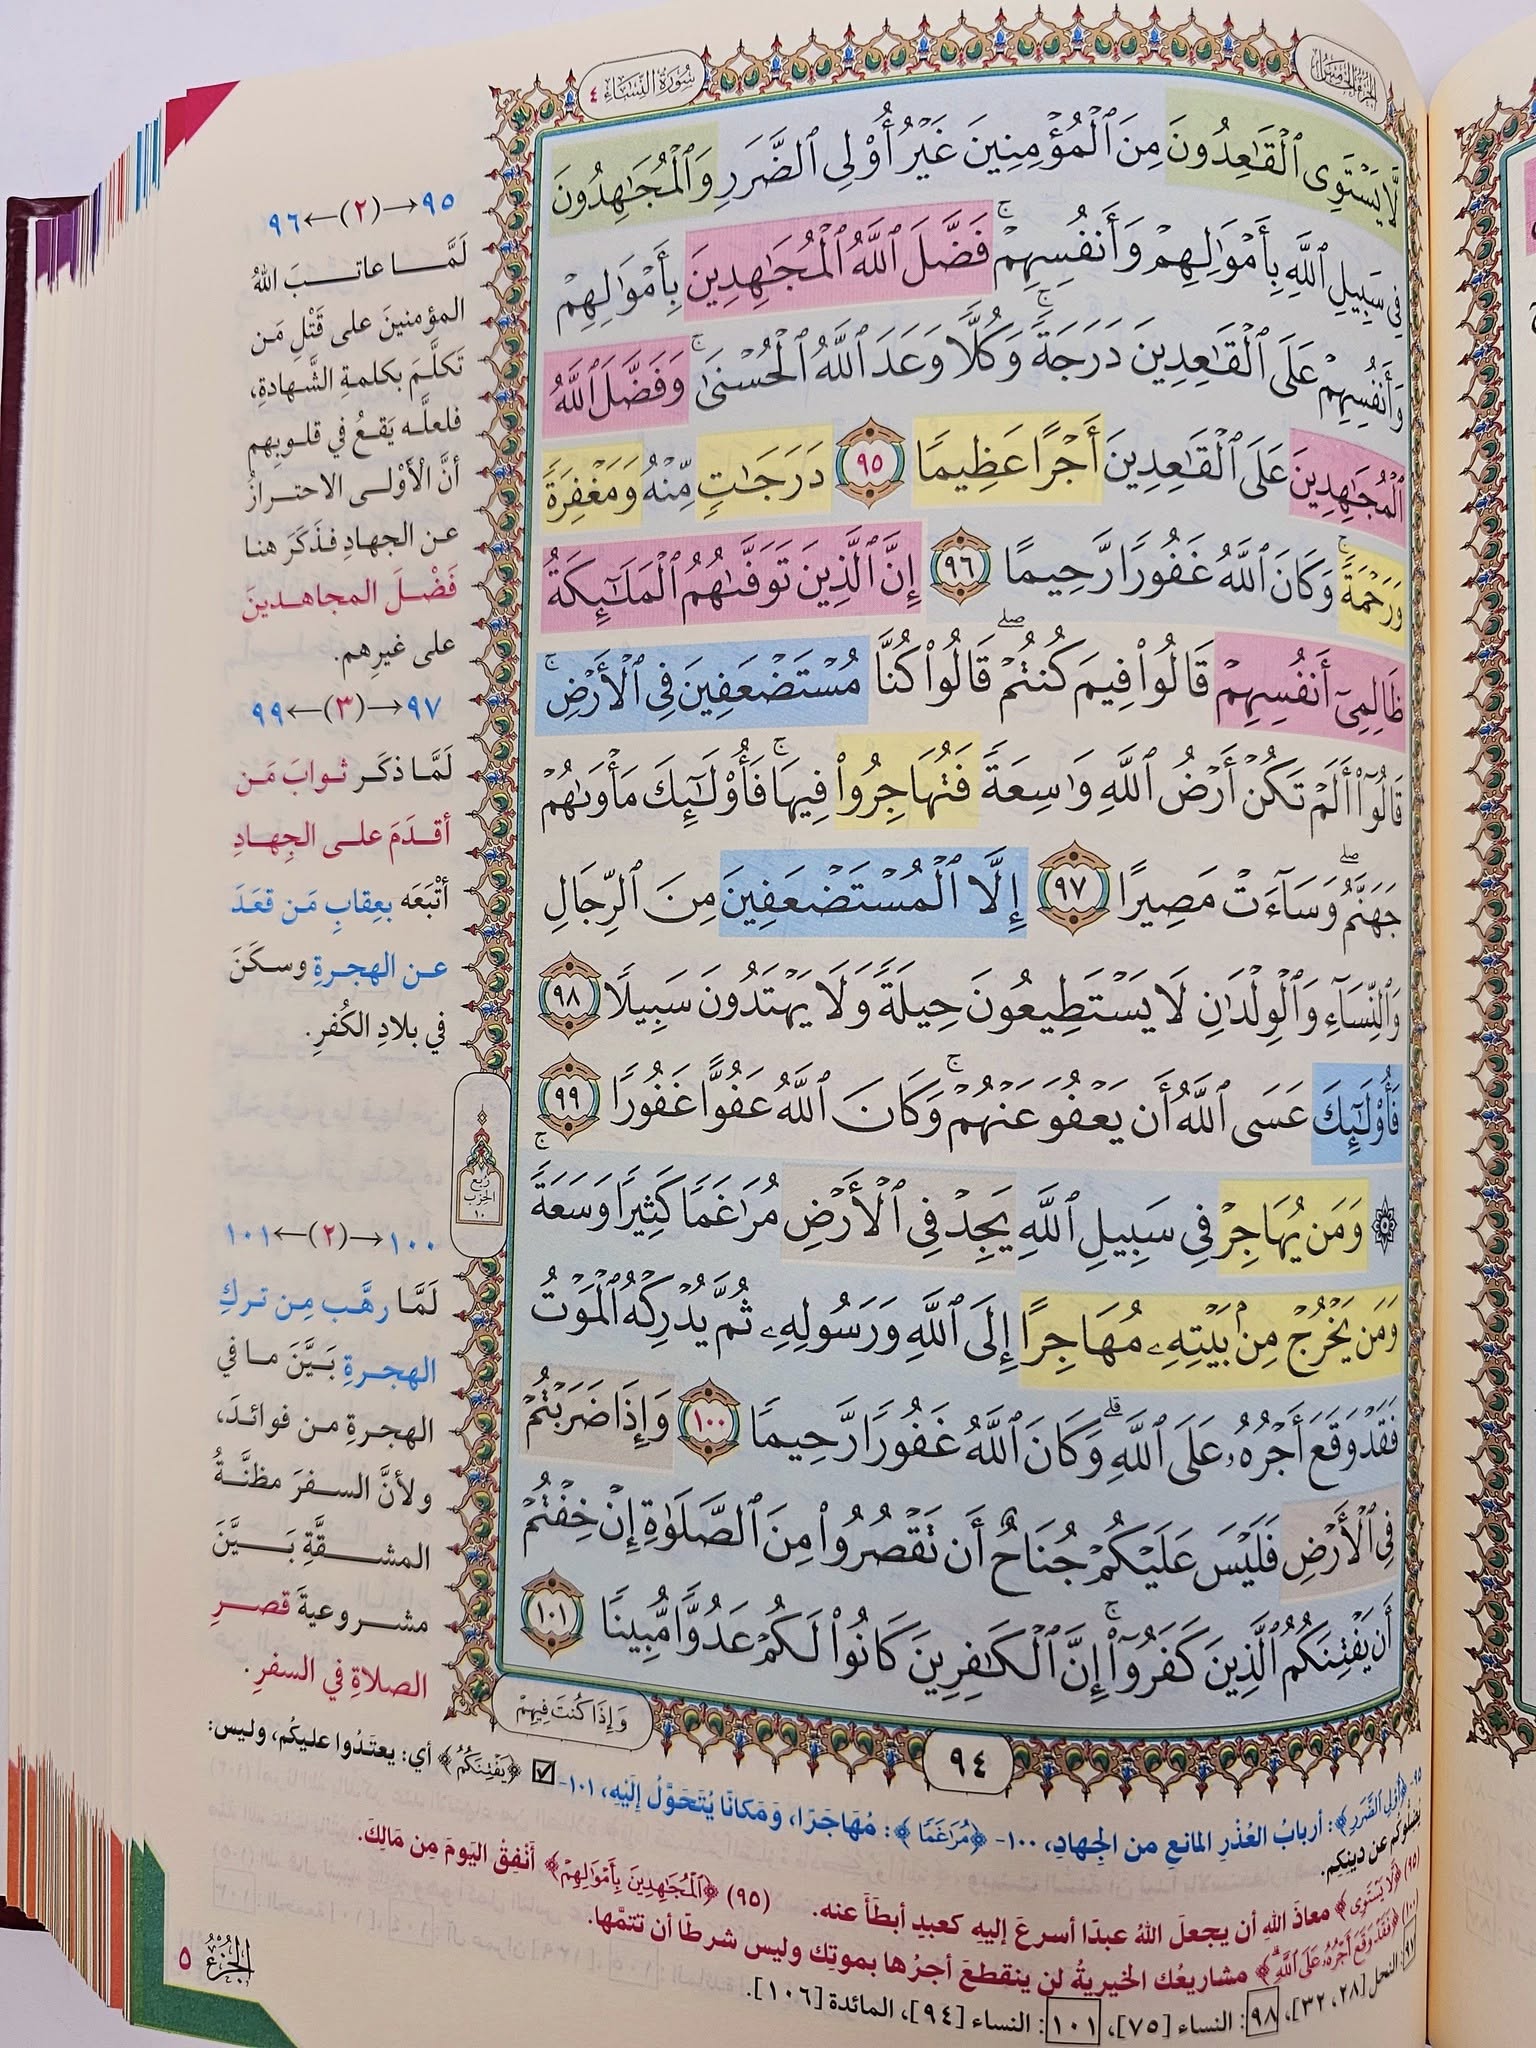 الجزء الخامس
سُورَةُ النِّسَاءِ ٤
لَّا يَسْتَوِى ٱلْقَـٰعِدُونَ مِنَ ٱلْمُؤْمِنِينَ غَيْرُ أُو۟لِى ٱلضَّرَرِ وَٱلْمُجَـٰهِدُونَ
فِى سَبِيلِ ٱللَّهِ بِأَمْوَٰلِهِمْ وَأَنفُسِهِمْ ۚ فَضَّلَ ٱللَّهُ ٱلْمُجَـٰهِدِينَ بِأَمْوَٰلِهِمْ
وَأَنفُسِهِمْ عَلَى ٱلْقَـٰعِدِينَ دَرَجَةً ۚ وَكُلًّا وَعَدَ ٱللَّهُ ٱلْحُسْنَىٰ ۚ وَفَضَّلَ ٱللَّهُ
ٱلْمُجَـٰهِدِينَ عَلَى ٱلْقَـٰعِدِينَ أَجْرًا عَظِيمًا ٩٥ دَرَجَـٰتٍ مِّنْهُ وَمَغْفِرَةً
وَرَحْمَةً ۚ وَكَانَ ٱللَّهُ غَفُورًا رَّحِيمًا ٩٦ إِنَّ ٱلَّذِينَ تَوَفَّىٰهُمُ ٱلْمَلَـٰٓئِكَةُ
ظَالِمِىٓ أَنفُسِهِمْ قَالُوا۟ فِيمَ كُنتُمْ ۖ قَالُوا۟ كُنَّا مُسْتَضْعَفِينَ فِى ٱلْأَرْضِ ۚ
قَالُوٓا۟ أَلَمْ تَكُنْ أَرْضُ ٱللَّهِ وَٰسِعَةً فَتُهَاجِرُوا۟ فِيهَا ۚ فَأُو۟لَـٰٓئِكَ مَأْوَىٰهُمْ
جَهَنَّمُ ۖ وَسَآءَتْ مَصِيرًا ٩٧ إِلَّا ٱلْمُسْتَضْعَفِينَ مِنَ ٱلرِّجَالِ
وَٱلنِّسَآءِ وَٱلْوِلْدَٰنِ لَا يَسْتَطِيعُونَ حِيلَةً وَلَا يَهْتَدُونَ سَبِيلًا ٩٨
فَأُو۟لَـٰٓئِكَ عَسَى ٱللَّهُ أَن يَعْفُوَ عَنْهُمْ ۚ وَكَانَ ٱللَّهُ عَفُوًّا غَفُورًا ٩٩
۞ وَمَن يُهَاجِرْ فِى سَبِيلِ ٱللَّهِ يَجِدْ فِى ٱلْأَرْضِ مُرَٰغَمًا كَثِيرًا وَسَعَةً ۚ
وَمَن يَخْرُجْ مِنۢ بَيْتِهِۦ مُهَاجِرًا إِلَى ٱللَّهِ وَرَسُولِهِۦ ثُمَّ يُدْرِكْهُ ٱلْمَوْتُ
فَقَدْ وَقَعَ أَجْرُهُۥ عَلَى ٱللَّهِ ۗ وَكَانَ ٱللَّهُ غَفُورًا رَّحِيمًا ١٠٠ وَإِذَا ضَرَبْتُمْ
فِى ٱلْأَرْضِ فَلَيْسَ عَلَيْكُمْ جُنَاحٌ أَن تَقْصُرُوا۟ مِنَ ٱلصَّلَوٰةِ إِنْ خِفْتُمْ
أَن يَفْتِنَكُمُ ٱلَّذِينَ كَفَرُوٓا۟ ۚ إِنَّ ٱلْكَـٰفِرِينَ كَانُوا۟ لَكُمْ عَدُوًّا مُّبِينًا ١٠١
وَإِذَا كُنتَ فِيهِمْ
٩٤
٩٥→(٢)←٩٦
لَمَّا عاتبَ اللهُ
المؤمنينَ على قَتْلِ مَن
تَكلَّمَ بكلمةِ الشَّهادةِ،
فلعلَّه يَقعُ في قلوبِهم
أنَّ الأَوْلى الاحترازُ
عن الجهادِ فذَكَرَ هنا
فَضْلَ المجاهدينَ
على غيرِهم.
٩٧→(٣)←٩٩
لَمَّا ذكَر ثوابَ مَن
أقدَمَ على الجِهادِ
أتْبَعَه بعِقابِ مَن قعَدَ
عن الهجرةِ وسكَنَ
في بلادِ الكُفرِ.
رُبع
الحِزْب
١٠
١٠٠→(٢)←١٠١
لَمَّا رهَّب مِن تركِ
الهجرةِ بَيَّنَ ما في
الهجرةِ من فوائدَ،
ولأنَّ السفرَ مظنَّةُ
المشقَّةِ بَيَّنَ
مشروعيةَ قصرِ
الصلاةِ في السفرِ.
٩٥- ﴿أُو۟لِى ٱلضَّرَرِ﴾: أربابُ العُذْرِ المانعِ من الجِهادِ، ١٠٠- ﴿مُرَٰغَمًا﴾: مُهَاجَرًا، وَمَكانًا يُتَحَوَّلُ إِلَيْهِ، ١٠١- ☑ ﴿يَفْتِنَكُمُ﴾ أي: يعتَدُوا عليكُم، وليس:
يُضِلُّوكُم عن دينِكِم.
(٩٥) ﴿لَّا يَسْتَوِى﴾ معاذَ اللهِ أن يجعلَ اللهُ عبدًا أسرعَ إليهِ كعبدٍ أبطَأَ عنه. (٩٥) ﴿ٱلْمُجَـٰهِدِينَ بِأَمْوَٰلِهِمْ﴾ أَنْفِقْ اليَومَ مِن مَالِكَ.
(١٠٠) ﴿فَقَدْ وَقَعَ أَجْرُهُۥ عَلَى ٱللَّهِ ۗ﴾ مشاريعُك الخيريةُ لن ينقطعَ أجرُها بموتِك وليس شرطًا أن تتمَّها.
٩٧: النحل [٢٨، ٣٢]، ٩٨: النساء [٧٥]، ١٠١: النساء [٩٤]، المائدة [١٠٦].
الجُزْءُ
٥